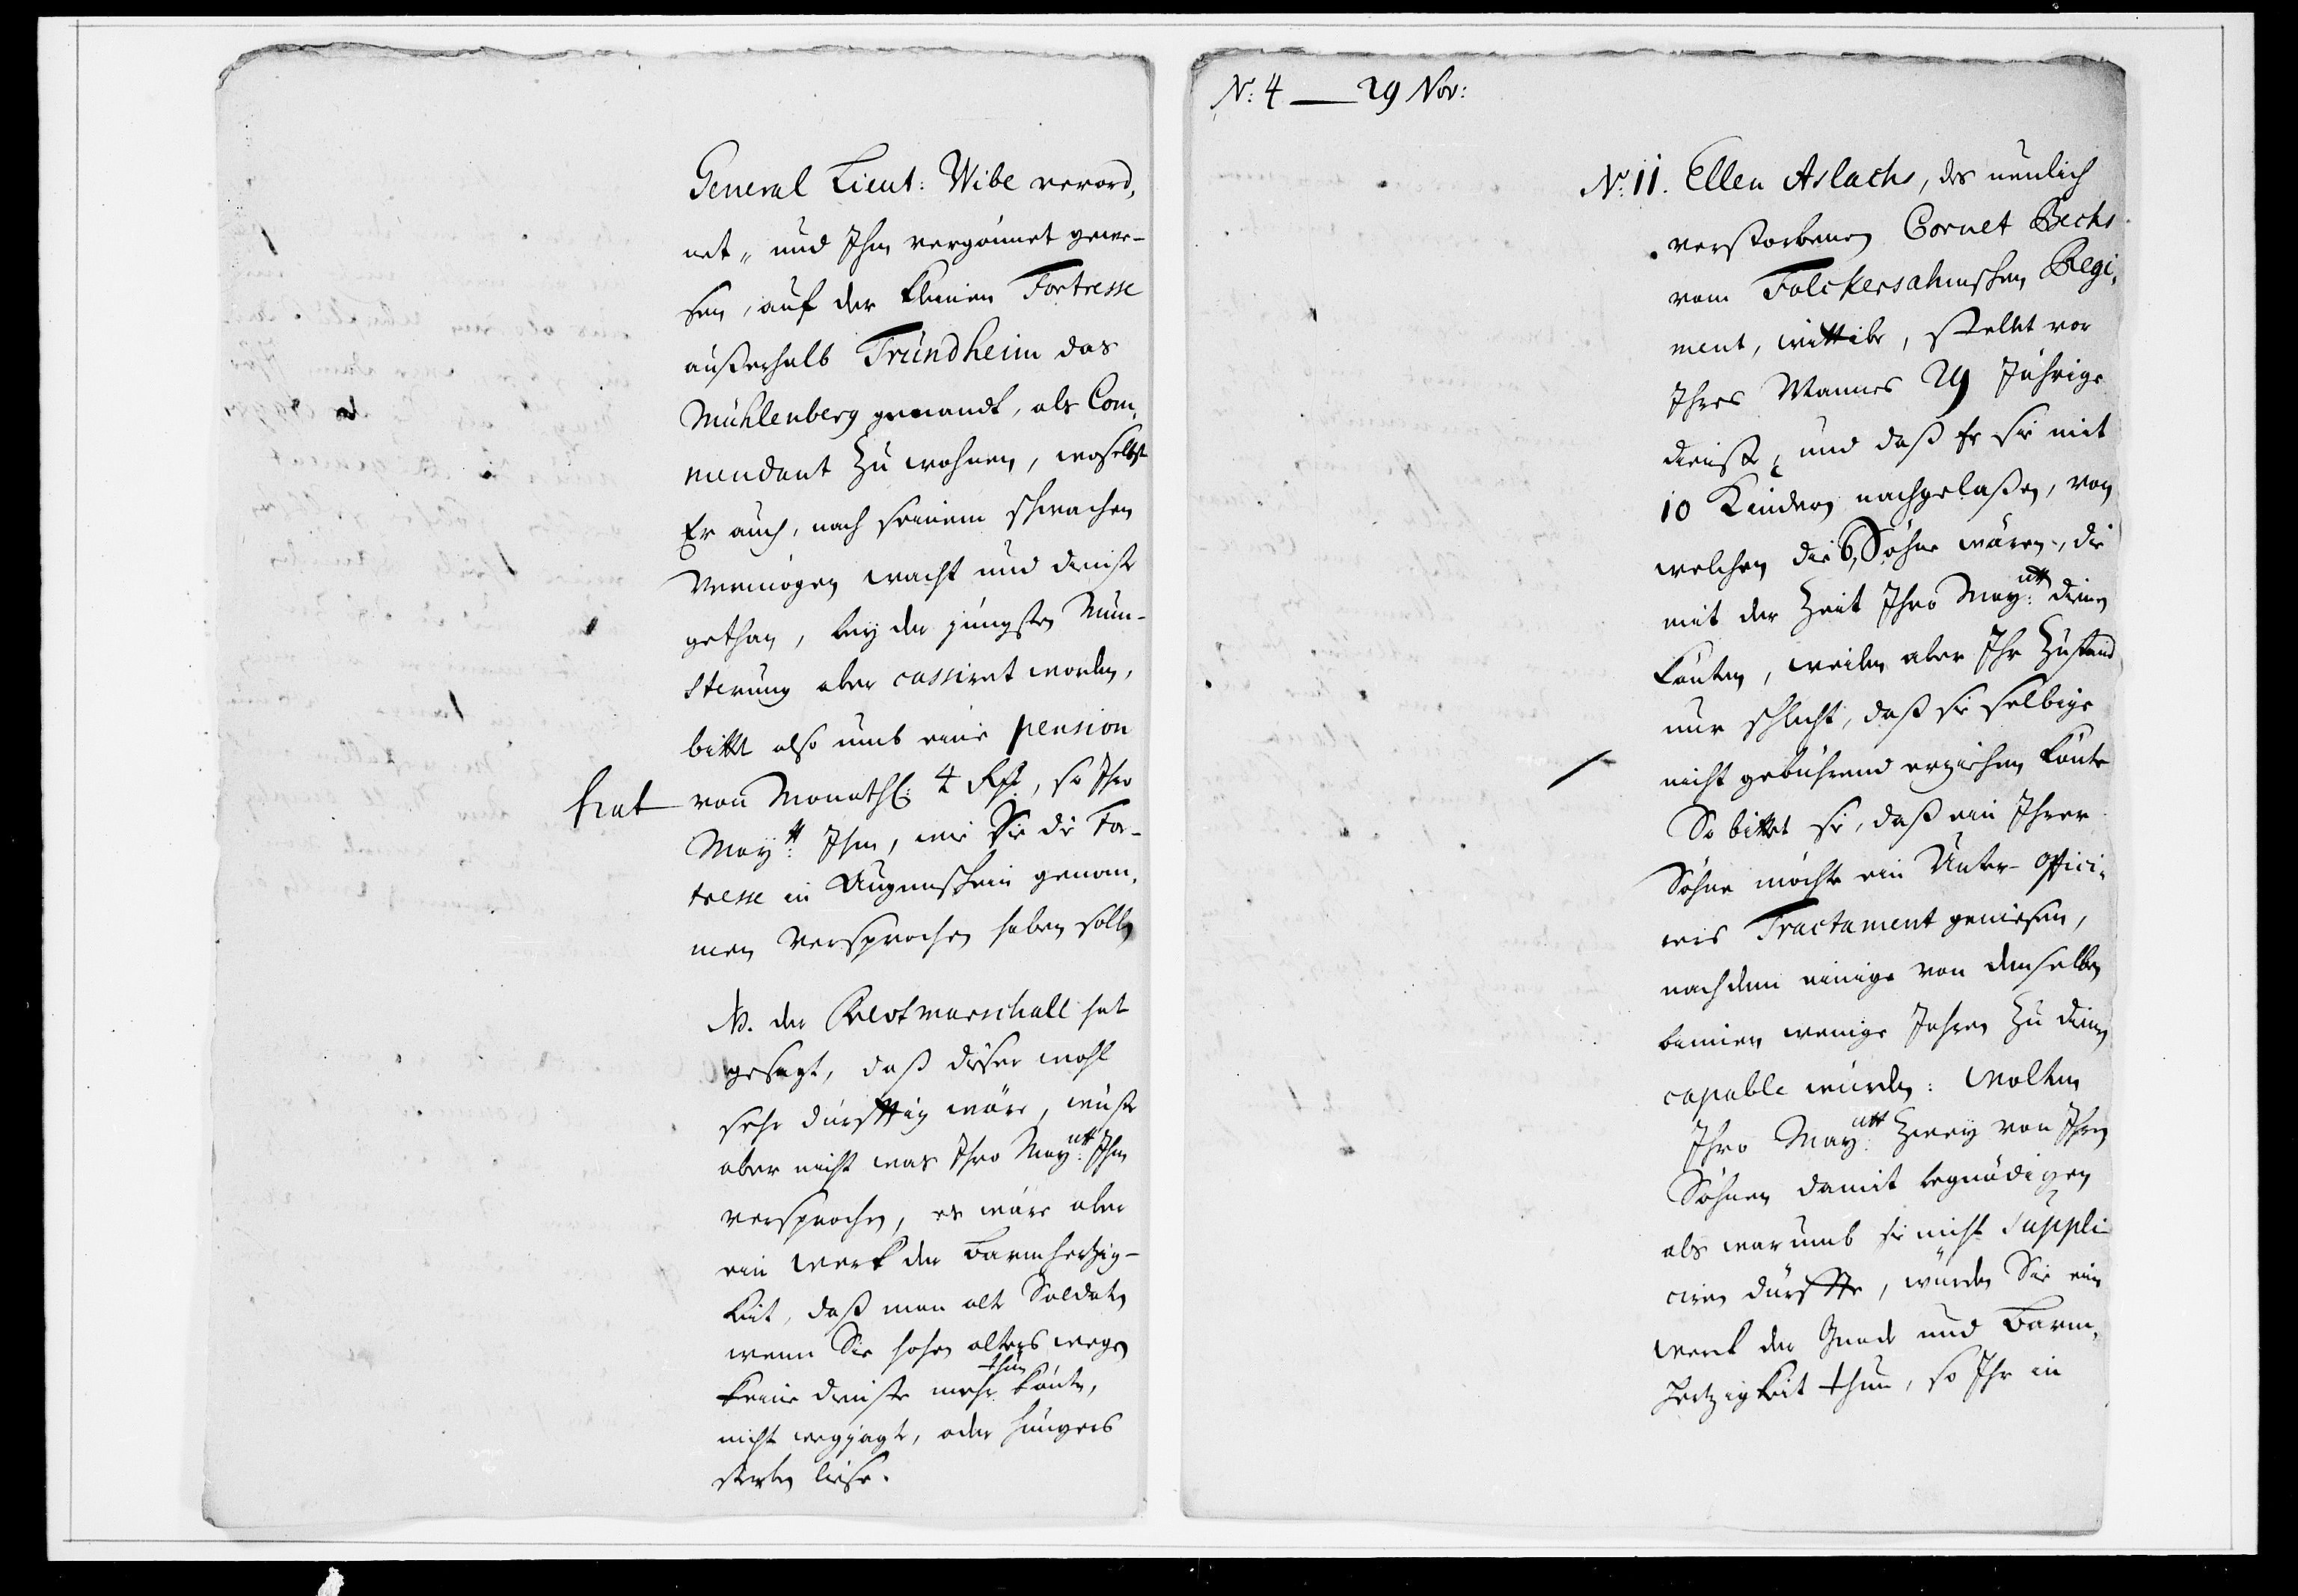 General Lieut: Wibe verord,
net, und Ihm vergönnet gewe-
sen, auf der kleinen Fortresse
außerhalb Trundheim das
Mühlenberg genandt, als Com,
mendant zu wohnen, woselbst
Er auch, nach seinem schwachen
Vermögen wacht und dienste
gethan, bey der jüngsten Mun-
sterung aber cassiret worden,
bittet also umb eine pension
hat
von Monathl: 4 Rthl, so Ihro
Maytt: Ihm, wie Sie die For-
tresse in Augenschein genom,
men versprochen haben solln
NB. der Feldtmarschall hat
gesagt, daß dieser wohl
sehr dürfftig wäre, wuste
aber nicht was Ihro Maytt: Ihm
versprochen, es wäre aber
ein werk der Barmhertzig-
keit, daß man alte Soldaten
wenn Sie hohen alters wegen
keine dienste mehr thun könten,
nicht wegjagte, oder hungers
sterben liese.
N: 4 — 29 Nov:
No: 11. Ellen Aslachs, des neulich
verstorbenen Cornet Bechs
vom Folckersahmschen Regi,
ment, wittibe, stellet vor
Ihres Mannes 29 Jährige
dienste, und daß Er sie mit
10 Kindern nachgelaßen, von
welchen die 6 Söhne wären, die
mit der Zeit Ihro Maytt: dienen
könten, weilen aber Ihr Zustand
nur schlecht, daß sie selbige
nicht gebührend erziehen könte
So bittet sie, daß ein Ihrer
Söhne möchte ein Unter-Offici,
ers Tractament geniesen,
nachdem einige von denselben
binnen wenige Jahren zu dienen
capable würden: Wolten
Ihro Maytt: Zwey von Ihren
Söhnen damit begnädigen
als warumb sie nicht suppli
ciren dürffte, würden Sie ein
werck der Gnade und Barm,
hertzigkeit thun, so Ihr in